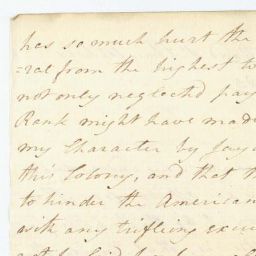 has so much hurt the
=ral from the highest to
not only neglected pay
Rank might have made
my Character by say
this Colony, and that th
to hinder the American
with any trifling excu